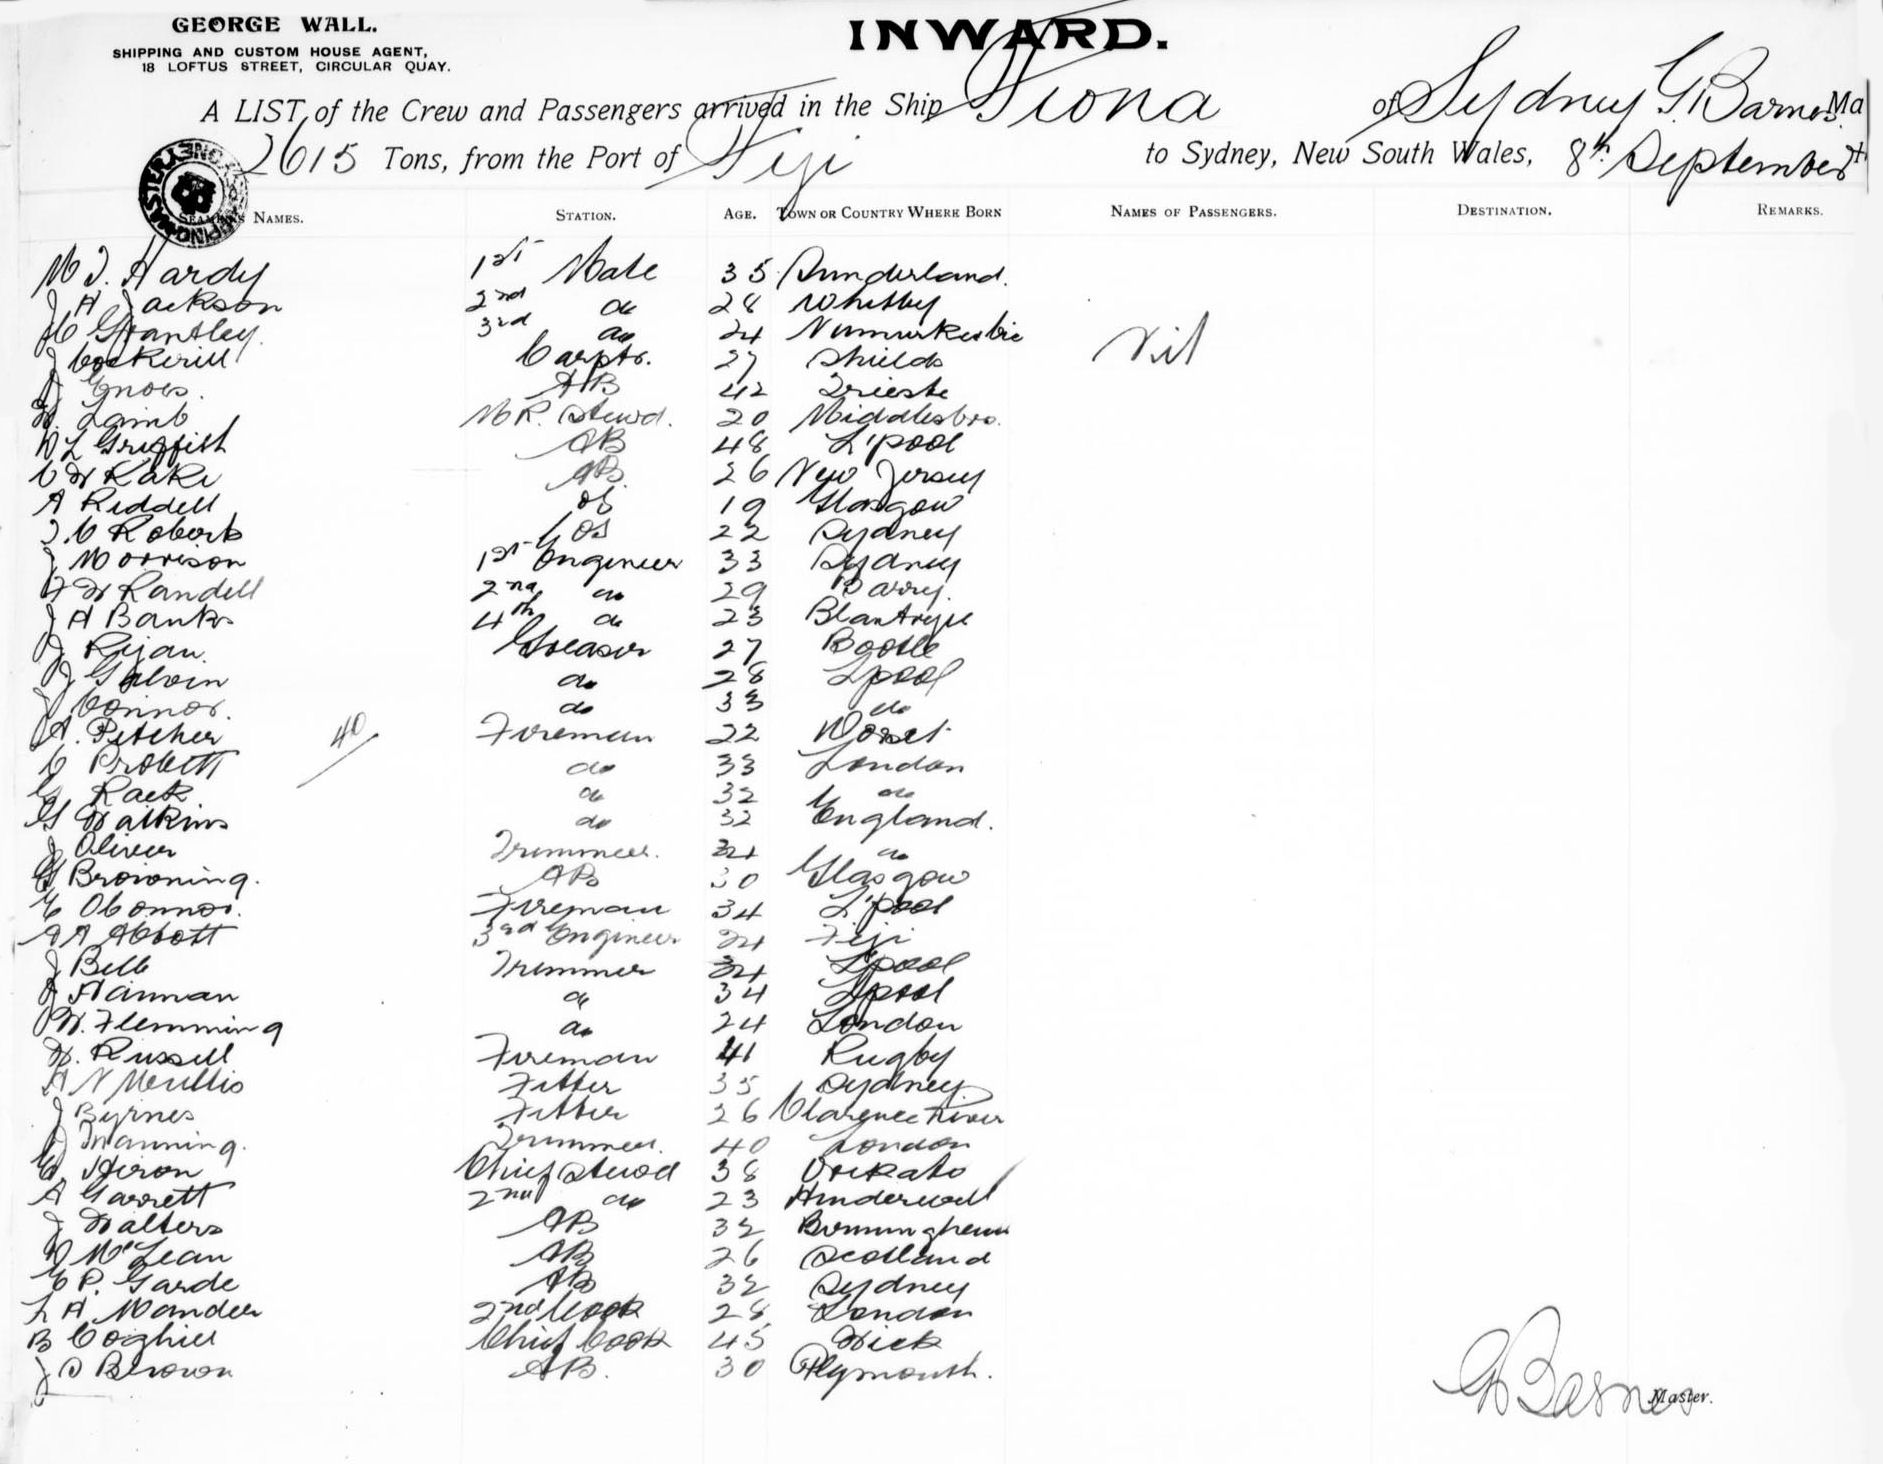 GEORGE WALL.
SHIPPING AND CUSTOM HOUSE AGENT,
18 LOFTUS STREET, CIRCULAR QUAY.
INWARD.
A LIST of the Crew and Passengers arrived in the Ship Fiona of Sydney G. Barnes Ma
2615 Tons, from the Port of Fiji to Sydney, New South Wales, 8th September
SEAMEN'S NAMES. STATION. AGE. TOWN OR COUNTRY WHERE BORN NAMES OF PASSENGERS. DESTINATION. REMARKS.
Hardy 1st Mate 35 Sunderland.
J A Jackson 2nd do 28 Whitby
Grantley. 3rd do 24 Numurkah Vic Nil
J Cockerill Carptr. 27 Shields
J AB 42 Trieste
Lamb M R. Stewd. 20 Middlesbro.
D L Griffith AB 48 L'pool
C W Kake AB. 26 New Jersey
A Riddell OS 19 Glasgow
J. C Roberts OS 22 Sydney
J Morrison 1st Engineer 33 Sydney
F W Randell 2nd do 29 Barry.
J A Banks 4th do 23 Blantyre
J Greaser 27 Bootle
J Galvin do 28 Lpool
J Connor. do 33 do
A. Pitcher 40 Fireman 22 Dorset
C Probett do 33 London
G Rack do 32 do
G Watkins do 32 England.
J Oliver Trimmer. 34 do
G Browning. AB 30 Glasgow
E OConnor. Fireman 34 L'pool
A A Abbott 3rd Engineer 24 Fiji
J Bell Trimmer 34 L'pool
J Hannan do 34 Lpool
W. Flemming do 24 London
W. Russell Fireman 41 Rugby
A N Fitter 35 Sydney
J Byrnes Fitter 26 Clarence River
J Manning. Trimmer. 40 London
Chief Stewd 38
A Garrett 2nd do 23 Hinderwell
J Walters AB 32 Birmingham
D McLean AB 26 Scotland
E P. Garde AB 32 Sydney
L A. Mander 2nd Cook 28 London
B Coghill Chief Cook 45 Wick
J D Brown AB. 30 Plymouth.
G Barnes Master.